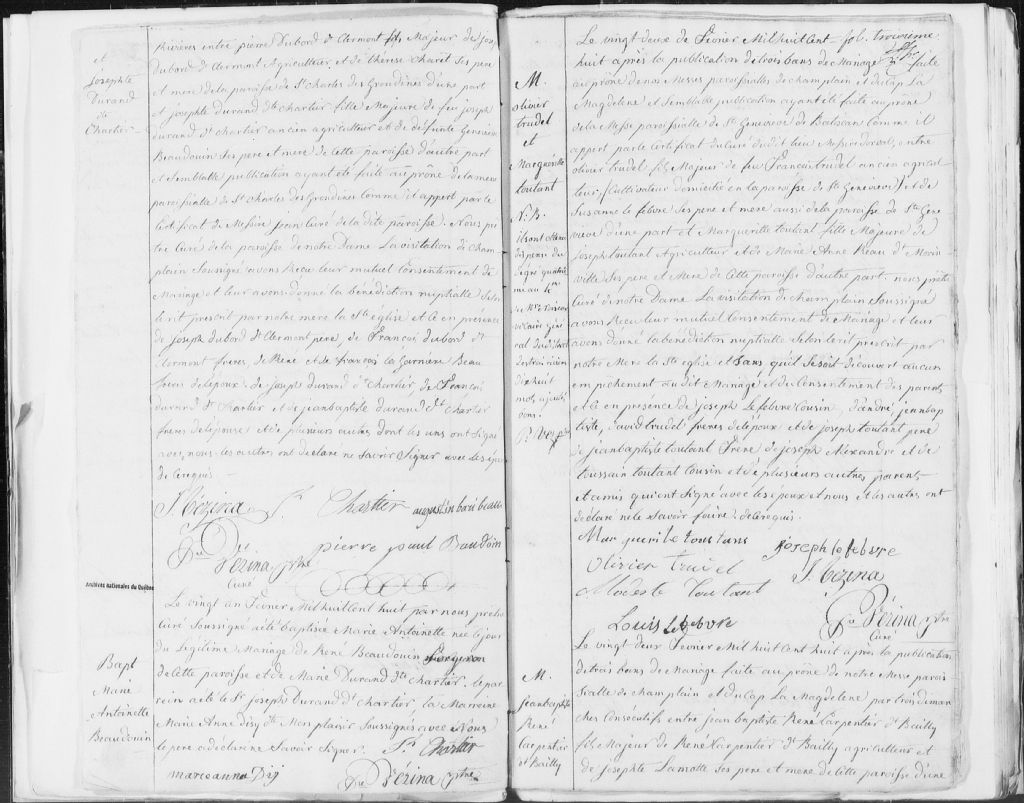 et
Josephte
Durand
dt
Chartier
Rivières entre pierre Dubord dt Clermont fils Majeur de joseph
Dubord dt Clermont Agriculteur et de thérèse Charet ses père
et mere de la paroise de St Charles des Grondines d'une part
et josephte durand dte chartier fille Majeure de feu joseph
durand dt chartier ancien agriculteur et de défunte Genevieve
Beaudouin ses pere et mere de Cette paroisse d'autre part
et semblable publication ayant été faite au prône de la messe
paroissialle de St Charles des Grondines Comme il appert par le
Certificat de Messire jean curé de la dite paroisse. Nous prê-
tre Curé de la paroisse de notre Dame La visitation de Cham
plain Soussigné avons Recu leur mutuel Consentement de
Mariage et leur avons donné la bénédiction nuptialle Selon
le rit prescrit par notre mere la Ste eglise et ce en présence
de joseph dubord dt Clermont pere, de François dubord dt
Clermont freres, de René et de françois le Beau
freres de lepoux, de joseph durand dt Chartier, de François
durand dt Chartier et de jean baptiste durand dt Chartier
freres de lepouse et de plusieurs autres dont les uns ont Signé
avec nous les autres ont declaré ne savoir Signer avec les époux
de Cerequis
Chartier augustin
pierre paul Baudoin
Pre Vézina ptre
Curé
Archives nationales du Québec
Bapt
Marie
Antoinette
Beaudouin
Le vingt an Février Mil huit cent huit par nous prêtre
curé Soussigné a été baptisée Marie Antoinette née le jour
du Légitime Mariage de René Beaudouin
de Cette paroisse et de Marie Durand dte Chartier. le par
rein a été le Sr joseph Durand dt Chartier, la Marreine
Marie Anne désy dte Mon plaisir Soussignés avec Nous
le pere a déclaré ne Savoir Signer. Chartier
marie anne Dizy
Pre Vézina ptre
M.
olivier
trudel
et
Marguerite
toutant
N.B.
ils ont obtenu
dispense du
degré quatrie
me au 4me
de Mr Noiseux
vicaire géné
ral du district
des trois rivieres
dix huit
mots ajoutés
bons.
P. Vez ptre
fol. troisieme
Le vingt deux de Février Mil huit cent
huit après la publication de trois bans de Mariage faite
au prône de nos Messes paroissialles de champlain et du Cap La
Magdelene et semblable publication ayant été faite au prône
de la Messe paroissialle de Ste Genevieve de Batiscan Comme il
appert par le Certificat du Curé dudit lieu Messire dorval, entre
olivier trudel fils Majeur de feu François trudel ancien agricul
teur, (Cultivateur domicilié en la paroisse de Ste Genevieve) et de
Susanne le febvre ses pere et mere aussi de la paroisse de Ste Gene
vieve d'une part et Marguerite toutant fille Majeure de
Joseph toutant Agriculteur et de Marie Anne Reau dt Morin
ville ses pere et Mere de Cette paroisse d'autre part, nous prêtre
Curé de notre Dame La visitation de Champlain Soussigné
avons Recu leur mutuel Consentement de Mariage et leur
avons donné la bénédiction nuptialle Selon le rit prescrit par
notre Mere la Ste eglise et Sans qu'il Se soit découvert aucun
empêchement au dit Mariage et du Consentement des parents
et ce en présence de joseph Lefebvre Cousin, d'andré, jean bap
tiste, david trudel freres de lépoux et de joseph toutant pere
de jean baptiste toutant frere de joseph Alexandre et de
toussain toutant Cousin et de plusieurs autres parents
et amis qui ont Signé avec les époux et nous et les autres ont
déclaré ne le Savoir faire. de Cerequis.
Mar gueri te toutans joseph lefebvre
Olivier Trudel
Modeste Toutant
Louis Lefebvre
Pre Vézina ptre
Curé
M.
jean baptiste
René
Carpentier
dt Bailly
Le vingt deux Fevrier Mil huit cent huit après la publication
de trois bans de Mariage faite au prône de notre Messe parois
sialle de Champlain et du Cap La Magdelene par trois diman
ches Consécutifs entre jean baptiste René Carpentier dt Bailly
fils Majeur de René Carpentier dt Bailly agriculteur et
de josephte Lamotte ses pere et mere de Cette paroisse d'une